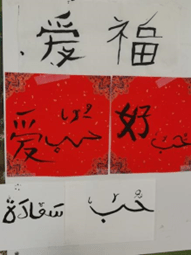 爱 福
爱 حب
好
سعادة حُبّ